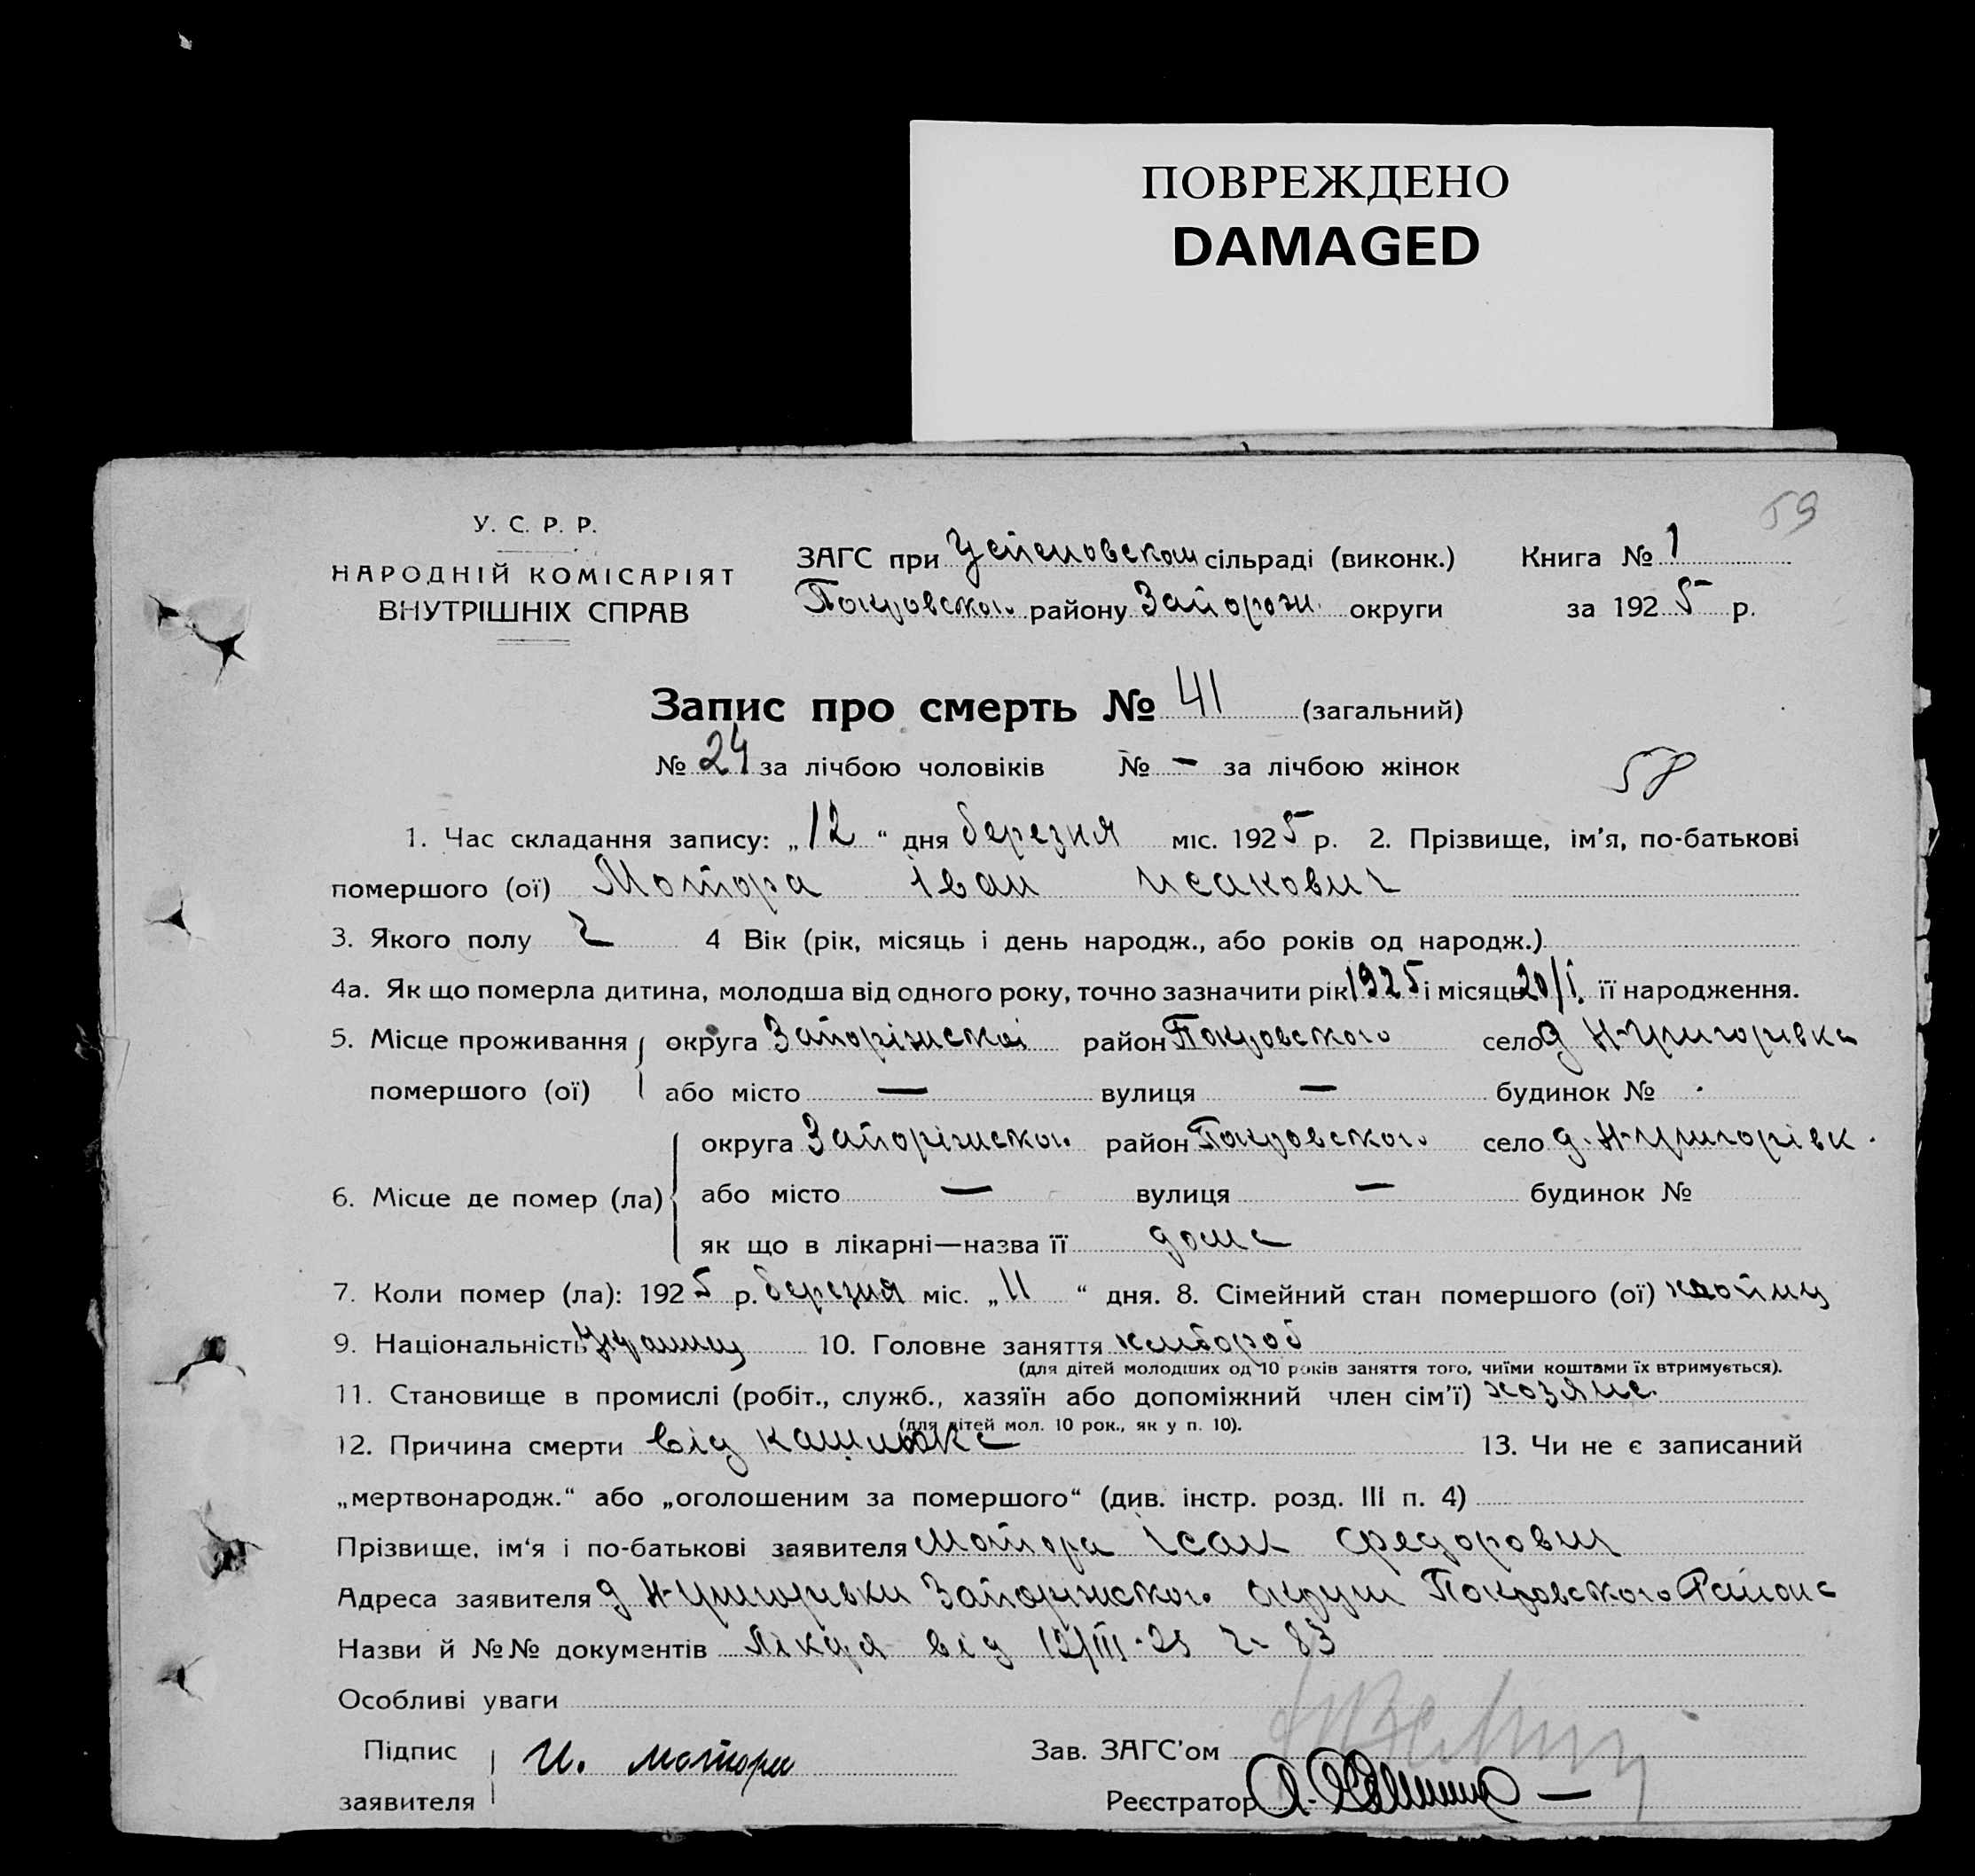 ПОВРЕЖДЕНО
DAMAGED
59
У. С. Р. Р.
НАРОДНІЙ КОМІСАРІЯТ
ВНУТРІШНІХ СПРАВ
ЗАГС при Успеновском сільраді (виконк.) Книга № 1
Покровского району Запорож. округи за 1925 р.
Запис про смерть № 41 (загальний)
№ 24 за лічбою чоловіків № — за лічбою жінок
58
1. Час складання запису: „12“ дня березня міс. 1925 р. 2. Прізвище, ім'я, по-батькові
помершого (ої) Мотора Іван Исакович
3. Якого полу ч 4 Вік (рік, місяць і день народж., або років од народж.)
4а. Як що померла дитина, молодша від одного року, точно зазначити рік 1925 і місяць 20/I. її народження.
5. Місце проживання округа Запоріжскоі район Покровского село д Н-Григорівка
помершого (ої) або місто — вулиця — будинок №
округа Запоріжского район Покровского село д. Н-Григорівк.
6. Місце де помер (ла) або місто — вулиця — будинок №
як що в лікарні—назва її дома
7. Коли помер (ла): 1925 р. березня міс. „11“ дня. 8. Сімейний стан помершого (ої)
9. Національність 10. Головне заняття хлібороб
(для дітей молодших од 10 років заняття того, чиїми коштами їх втримується).
11. Становище в промислі (робіт., служб., хазяїн або допоміжний член сім'ї) хозяїн
(для дітей мол. 10 рок., як у п. 10).
12. Причина смерти від кашлюка 13. Чи не є записаний
„мертвонародж.“ або „оголошеним за помершого“ (див. інстр. розд. III п. 4)
Прізвище, ім'я і по-батькові заявителя Мотора Ісак Федорович
Адреса заявителя д Н-Григоривки Запоріжского округи Покровского Района
Назви й №№ документів Лікаря від 12/III-25 ч- 83
Особливі уваги
Підпис И. Мотора Зав. ЗАГС'ом
заявителя Реєстратор